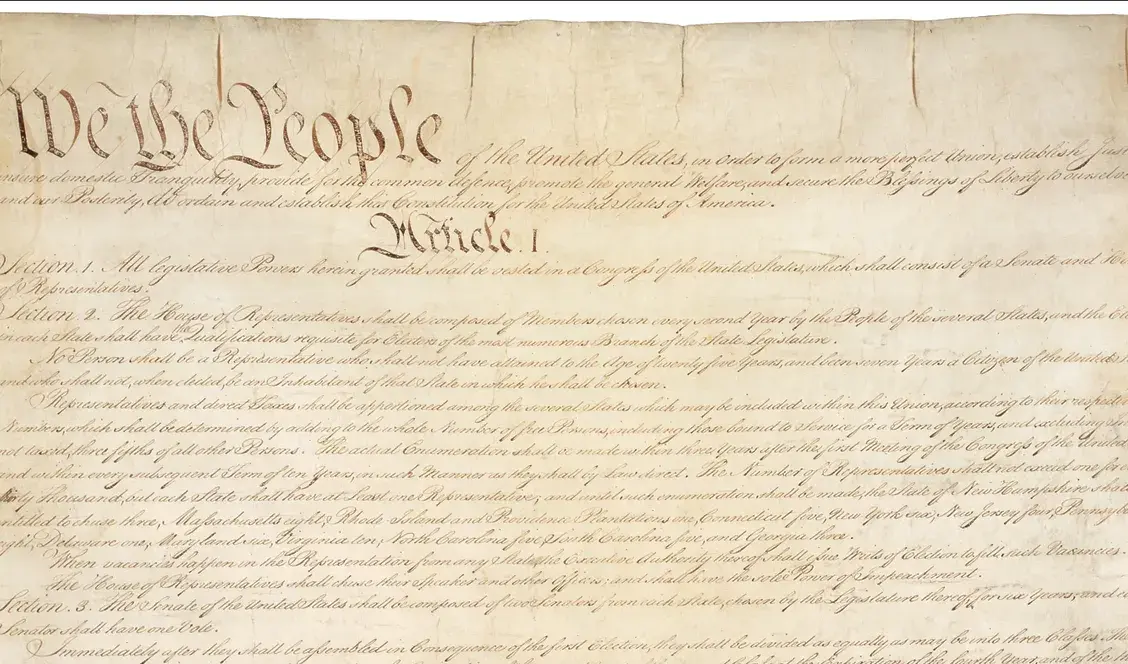 We the People of the United States, in Order to form a more perfect Union, establish Just
nsure domestic Tranquility, provide for the common defence, promote the general Welfare, and secure the Blessings of Liberty to ourselve
and our Posterity, do ordain and establish this Constitution for the United States of America.
Article. I.
Section. 1. All legislative Powers herein granted shall be vested in a Congress of the United States, which shall consist of a Senate and Ho
of Representatives.
Section. 2. The House of Representatives shall be composed of Members chosen every second Year by the People of the several States, and the Elec
in each State shall have the Qualifications requisite for Electors of the most numerous Branch of the State Legislature.
No Person shall be a Representative who shall not have attained to the Age of twenty five Years, and been seven Years a Citizen of the United S
and who shall not, when elected, be an Inhabitant of that State in which he shall be chosen.
Representatives and direct Taxes shall be apportioned among the several States which may be included within this Union, according to their respecti
Numbers, which shall be determined by adding to the whole Number of free Persons, including those bound to Service for a Term of Years, and excluding Ind
not taxed, three fifths of all other Persons. The actual Enumeration shall be made within three Years after the first Meeting of the Congress of the United
and within every subsequent Term of ten Years, in such Manner as they shall by Law direct. The Number of Representatives shall not exceed one for e
thirty Thousand, but each State shall have at Least one Representative; and until such enumeration shall be made, the State of New Hampshire shall
entitled to chuse three, Massachusetts eight, Rhode Island and Providence Plantations one, Connecticut five, New York six, New Jersey four, Pennsylv
eight, Delaware one, Maryland six, Virginia ten, North Carolina five, South Carolina five, and Georgia three.
When vacancies happen in the Representation from any State, the Executive Authority thereof shall issue Writs of Election to fill such Vacancies.
The House of Representatives shall chuse their Speaker and other Officers; and shall have the sole Power of Impeachment.
Section. 3. The Senate of the United States shall be composed of two Senators from each State, chosen by the Legislature thereof, for six Years; and e
Senator shall have one Vote.
Immediately after they shall be assembled in Consequence of the first Election, they shall be divided as equally as may be into three Classes. The
the Expiration of the fourth Year, and of the